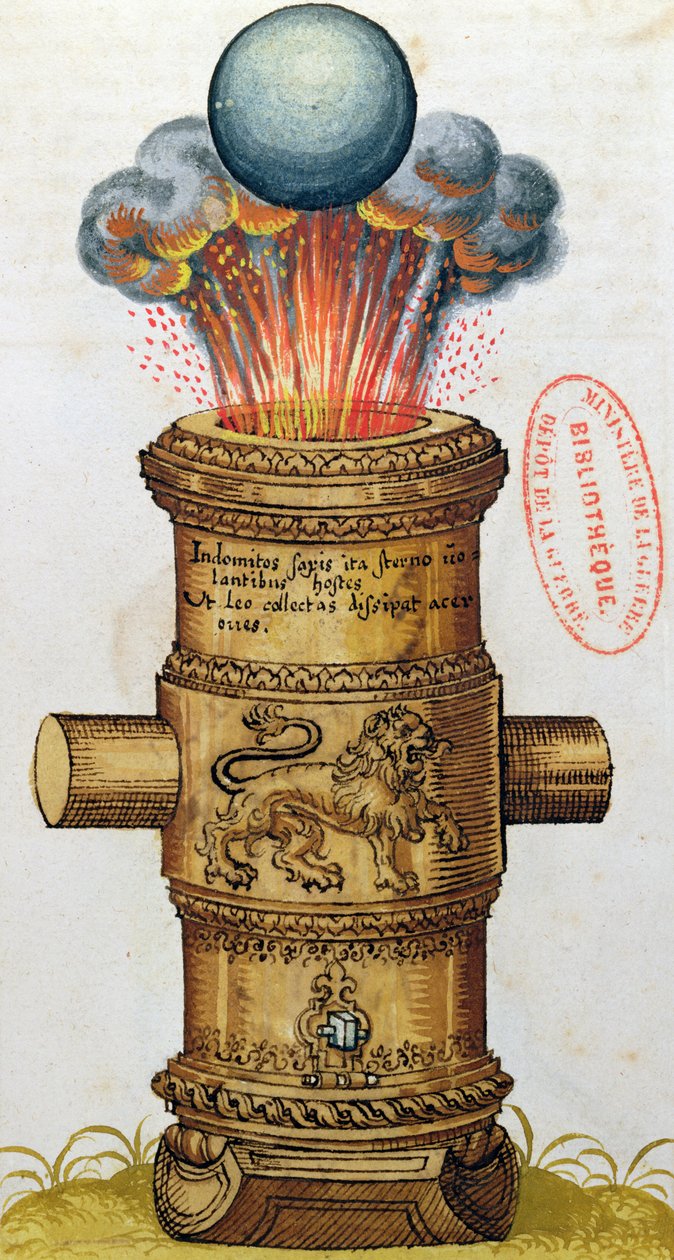 Indomitos saxis ita sterno uo=
lantibus hostes
Ut Leo collectas dissipat acer
oues.
MINISTÈRE DE LA GUERRE
BIBLIOTHÈQUE
DÉPÔT DE LA GUERRE.